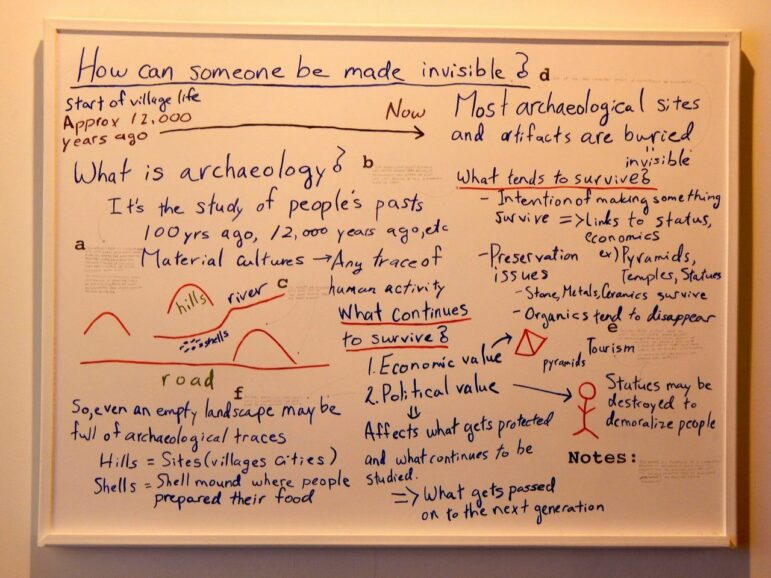 How can someone be made invisible?
d
Start of village life
Approx 12,000
years ago
Now
What is archaeology?
b
It's the study of people's pasts
100yrs ago, 12,000 years ago, etc
a
Material cultures → Any trace of
human activity
hills
river
c
shells
road
f
So, even an empty landscape may be
full of archaeological traces
Hills = Sites (villages cities)
Shells = Shell mound where people
prepared their food
What continues
to survive?
1. Economic value
pyramids
Tourism
2. Political value
Statues may be
destroyed to
demoralize people
⇓
Affects what gets protected
and what continues to be
studied.
=> What gets passed
on to the next generation
Most archaeological sites
and artifacts are buried
"
invisible
What tends to survive?
- Intention of making something
survive => links to status,
economics
- Preservation
issues
ex) Pyramids,
Temples, Statues
- Stone, Metals, Ceramics survive
- Organics tend to disappear
e
Notes: